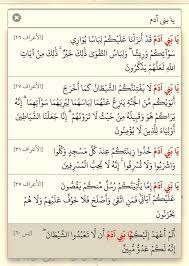 يا بني آدم
يَا بَنِي آدَمَ قَدْ أَنْزَلْنَا عَلَيْكُمْ لِبَاسًا يُوَارِي [الأعراف ٢٦]
سَوْآتِكُمْ وَرِيشًا ۖ وَلِبَاسُ التَّقْوَىٰ ذَٰلِكَ خَيْرٌ ۚ ذَٰلِكَ مِنْ آيَاتِ
اللَّهِ لَعَلَّهُمْ يَذَّكَّرُونَ
يَا بَنِي آدَمَ لَا يَفْتِنَنَّكُمُ الشَّيْطَانُ كَمَا أَخْرَجَ [الأعراف ٢٧]
أَبَوَيْكُمْ مِنَ الْجَنَّةِ يَنْزِعُ عَنْهُمَا لِبَاسَهُمَا لِيُرِيَهُمَا سَوْآتِهِمَا ۗ إِنَّهُ
يَرَاكُمْ هُوَ وَقَبِيلُهُ مِنْ حَيْثُ لَا تَرَوْنَهُمْ ۗ إِنَّا جَعَلْنَا الشَّيَاطِينَ
أَوْلِيَاءَ لِلَّذِينَ لَا يُؤْمِنُونَ
يَا بَنِي آدَمَ خُذُوا زِينَتَكُمْ عِنْدَ كُلِّ مَسْجِدٍ وَكُلُوا [الأعراف ٣١]
وَاشْرَبُوا وَلَا تُسْرِفُوا ۚ إِنَّهُ لَا يُحِبُّ الْمُسْرِفِينَ
يَا بَنِي آدَمَ إِمَّا يَأْتِيَنَّكُمْ رُسُلٌ مِنْكُمْ يَقُصُّونَ [الأعراف ٣٥]
عَلَيْكُمْ آيَاتِي ۙ فَمَنِ اتَّقَىٰ وَأَصْلَحَ فَلَا خَوْفٌ عَلَيْهِمْ وَلَا هُمْ
يَحْزَنُونَ
أَلَمْ أَعْهَدْ إِلَيْكُمْ يَا بَنِي آدَمَ أَنْ لَا تَعْبُدُوا الشَّيْطَانَ ۖ [يس ٦٠]
إِنَّهُ لَكُمْ عَدُوٌّ مُبِينٌ